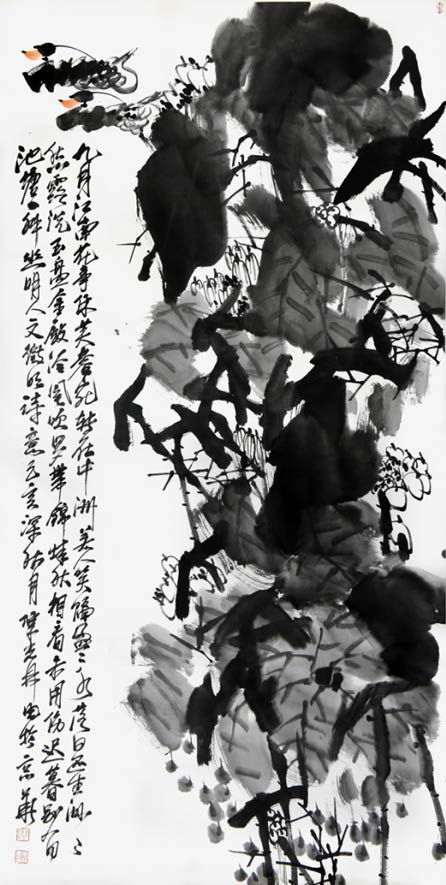 九月江南花事休芙蓉宛转在中洲美人笑隔盈〻水落日还生渺〻
愁露洗玉盘金殿冷风吹罗带锦城秋相看未用伤迟暮别有
池塘一种幽明人文徵明诗意深秋月陈林京華